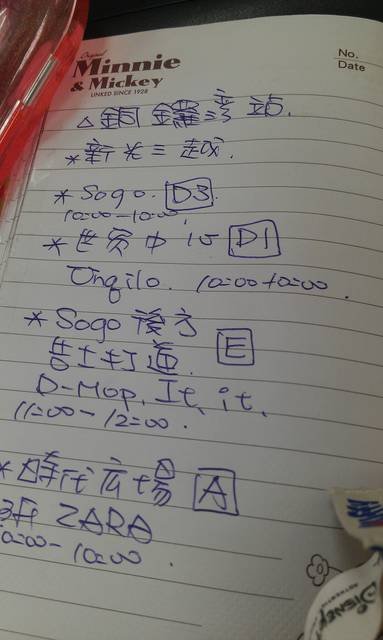 Original
Minnie
& Mickey
LINKED SINCE 1928
No.
Date
△銅鑼灣站.
*新光三越.
* Sogo. D3.
10:00-10:00.
*世貿中心 D1
Unqilo. 10:00+10:00.
* Sogo 後方
告士打道. E
D-Mop, It, it,
11:00-12:00.
*時代広場 A
ZARA
10:00-10:00.
DISNEY